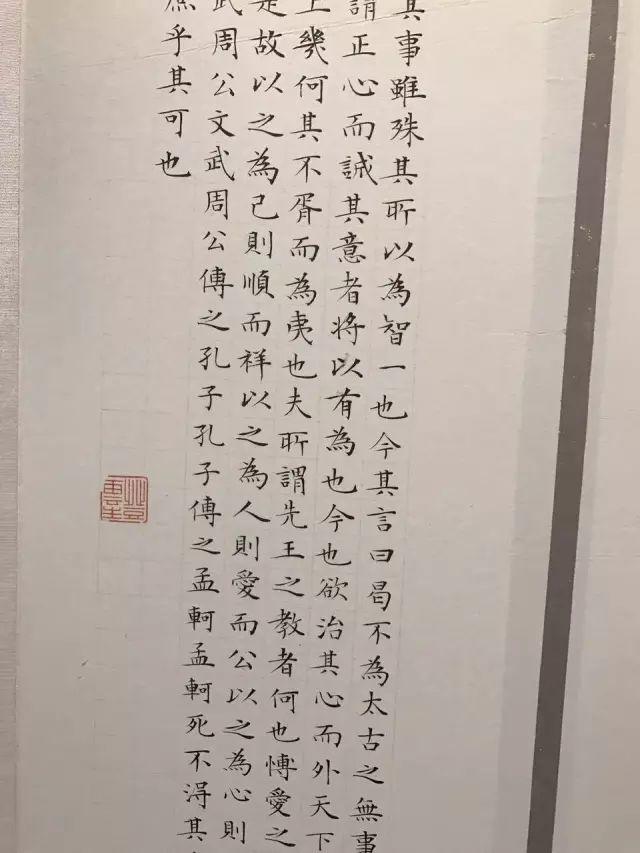 其事雖殊其所以為智一也今其言曰曷不為太古之無事
謂正心而誠其意者將以有為也今也欲治其心而外天下
上幾何其不胥而為夷也夫所謂先王之教者何也博愛之
是故以之為己則順而祥以之為人則愛而公以之為心則
武周公文武周公傳之孔子孔子傳之孟軻孟軻死不得其
庶乎其可也